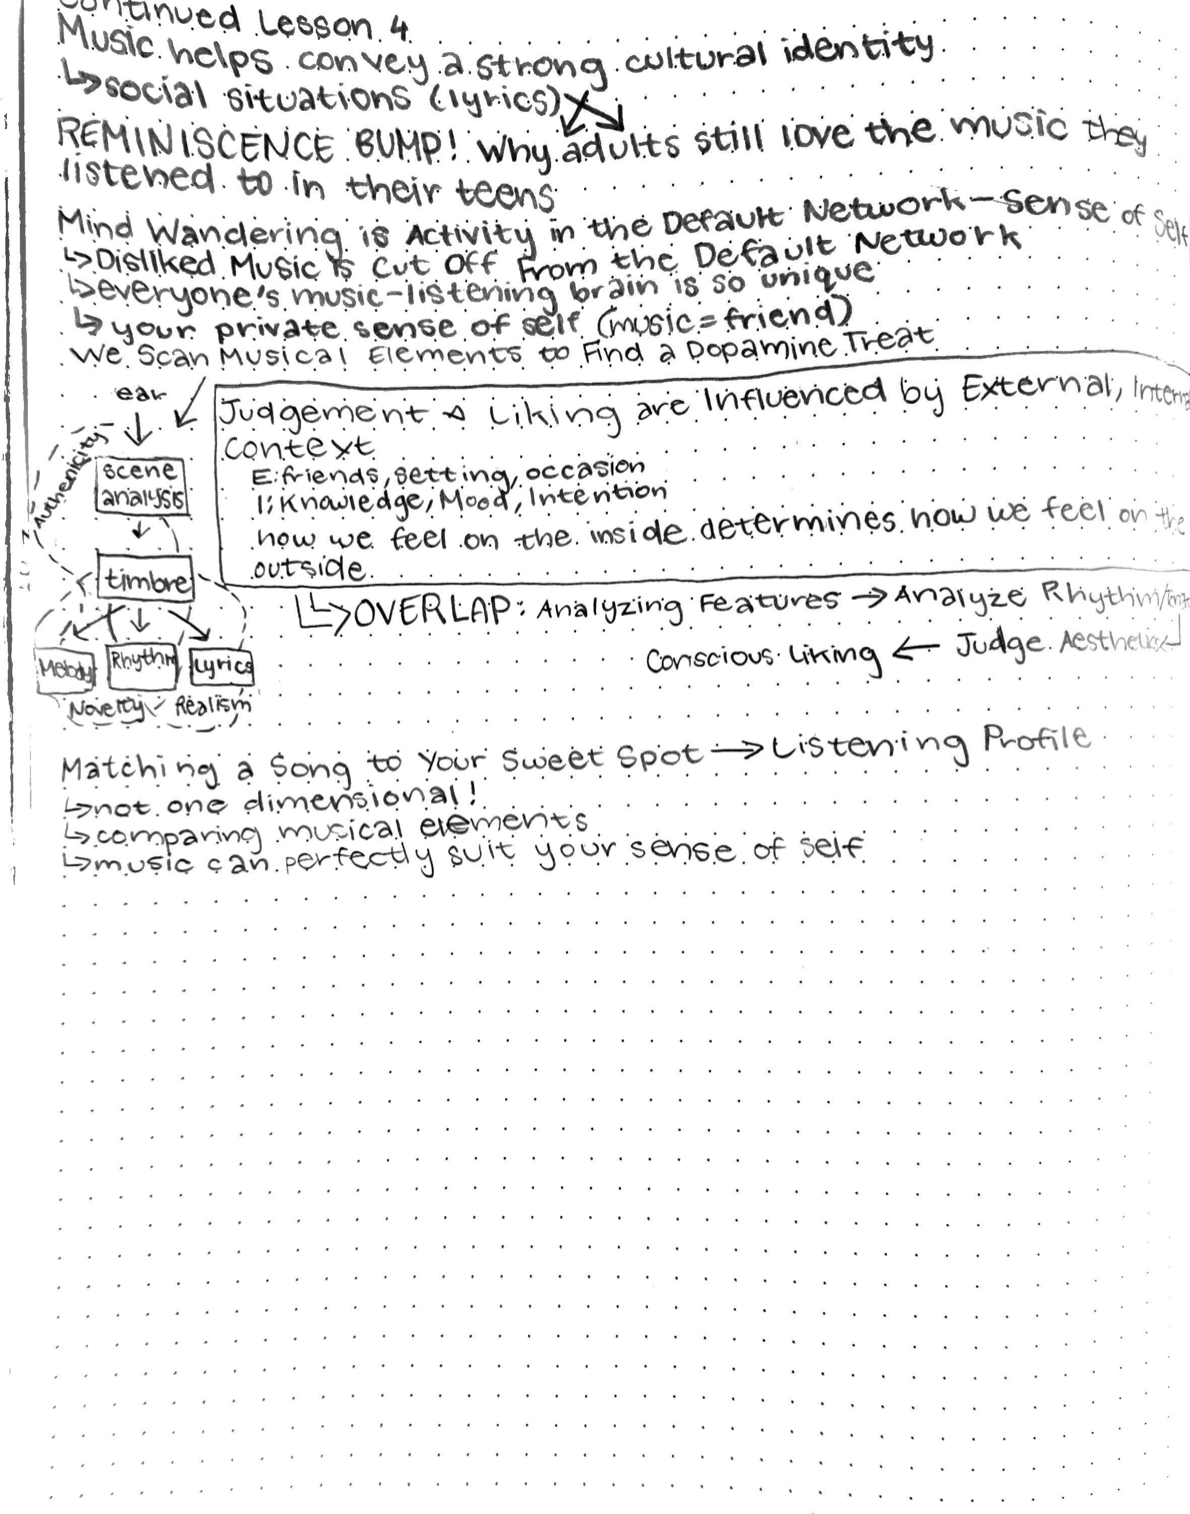 Continued Lesson 4
Music helps convey a strong cultural identity
↳social situations (lyrics)
REMINISCENCE BUMP! Why adults still love the music they
listened to in their teens
Mind Wandering is Activity in the Default Network—Sense of Self
↳Disliked Music is Cut Off From the Default Network
↳everyone's music-listening brain is so unique
↳your private sense of self (music=friend)
We Scan Musical Elements to Find a Dopamine Treat
ear
Authenicity
scene
analysis
timbre
Melody Rhythm Lyrics
Novelty Realism
Judgement & Liking are Influenced by External, Internal
Context
E: friends, setting, occasion
I: Knowledge, Mood, Intention
how we feel on the inside determines how we feel on the
outside
↳OVERLAP: Analyzing Features → Analyze Rhythm/
Conscious Liking ← Judge Aesthetics
Matching a Song to Your Sweet Spot → Listening Profile
↳not one dimensional!
↳comparing musical elements
↳music can perfectly suit your sense of self